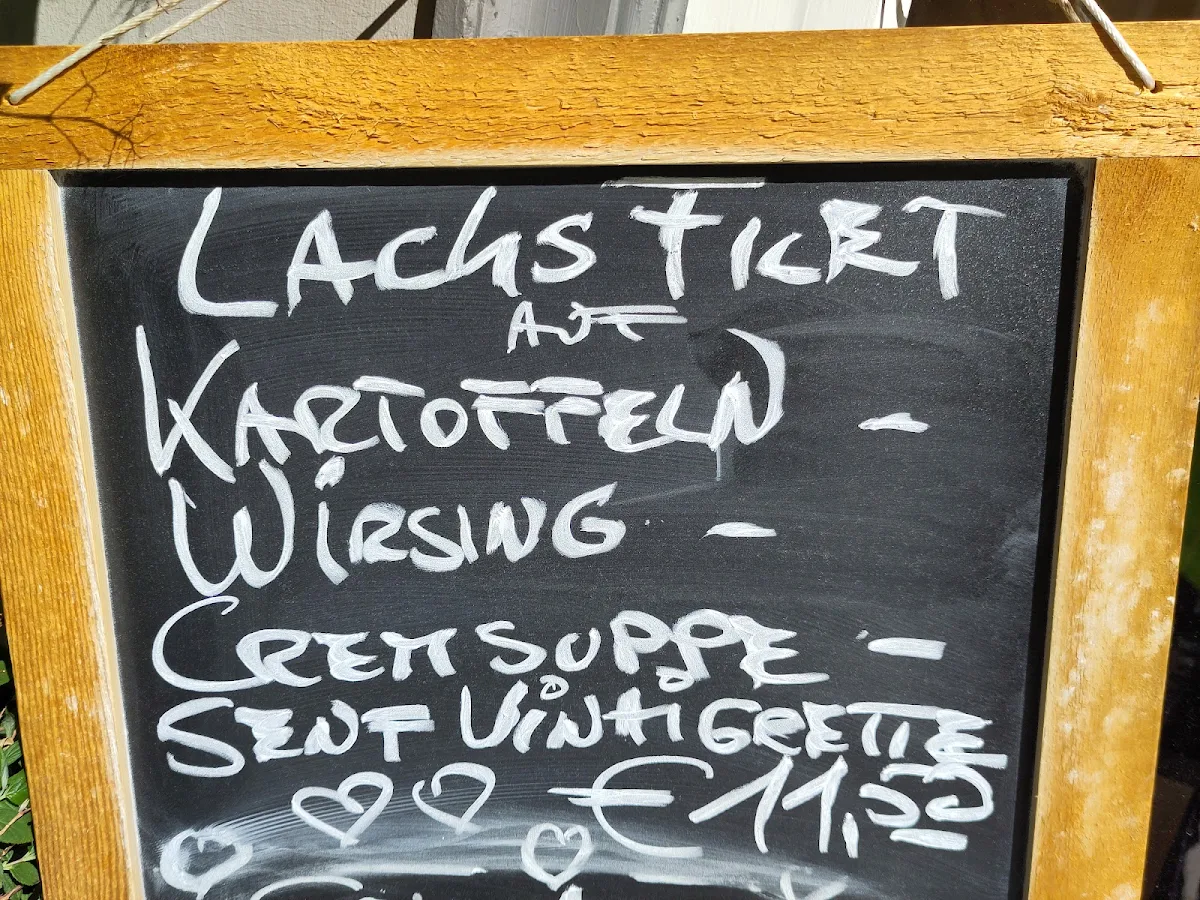 LACHS FILET
AUF
KARTOFFELN -
WIRSING -
CREMSUPPE -
SENF VINAIGRETTE
€ 11,50